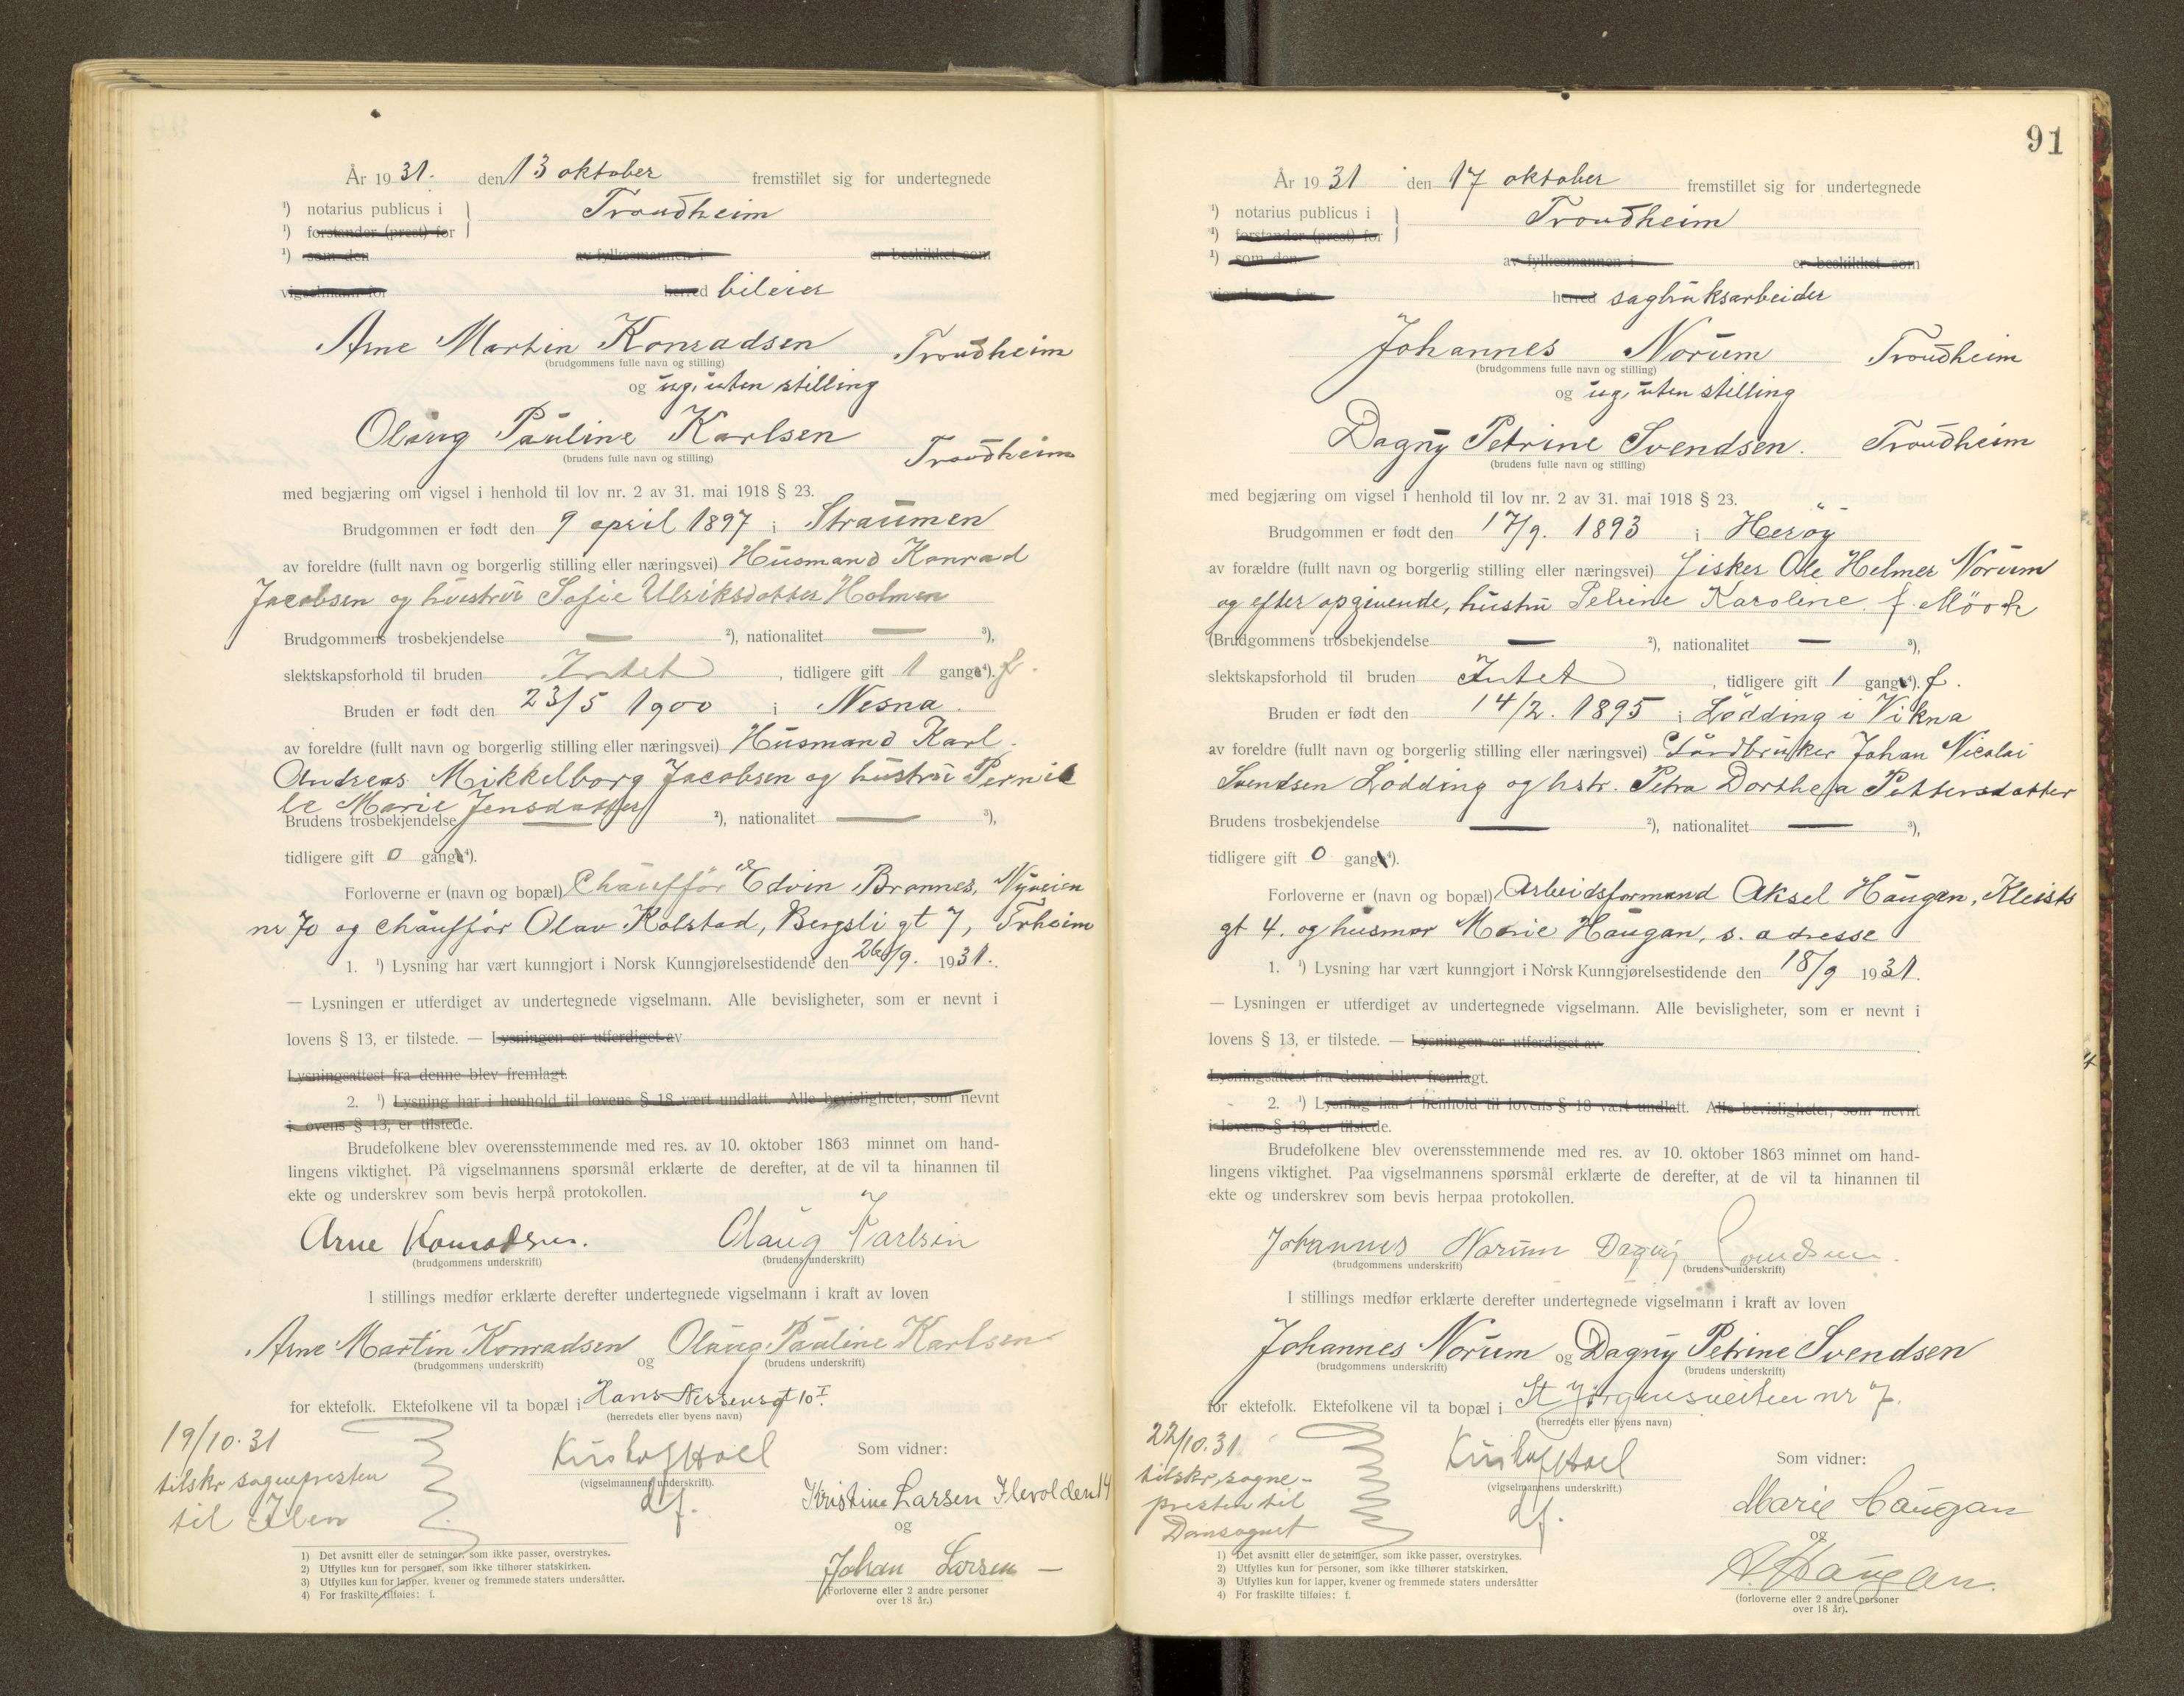 År 1931. den 13 oktober fremstillet sig for undertegnede
¹) notarius publicus i } Trondheim
¹) forstander (prest) for
¹) som den av fylkesmannen i er beskikket som
vigselmann for herred bileier
Arne Martin Konradsen Trondheim
(brudgommens fulle navn og stilling)
og ug. uten stilling
Olaug Pauline Karlsen Trondheim
(brudens fulle navn og stilling)
med begjæring om vigsel i henhold til lov nr. 2 av 31. mai 1918 § 23.
Brudgommen er født den 9 april 1897 i Straumen
av foreldre (fullt navn og borgerlig stilling eller næringsvei) Husmand Konrad
Jacobsen og hustru Sofie Ulriksdatter Holmen
Brudgommens trosbekjendelse — ²), nationalitet — ³),
slektskapsforhold til bruden Intet , tidligere gift 1 gange⁴). f.
Bruden er født den 23/5 1900 i Nesna.
av foreldre (fullt navn og borgerlig stilling eller næringsvei) Husmand Karl
Andreas Mikkelborg Jacobsen og hustru Pernil
le Marie Jensdatter
Brudens trosbekjendelse — ²), nationalitet — ³),
tidligere gift 0 gange⁴).
Forloverne er (navn og bopæl) Chauffør Edvin Brannes, Nyveien
nr 70 og chauffør Olav Kolstad, Bergsli gt 7, Trheim
1. ¹) Lysning har vært kunngjort i Norsk Kunngjørelsestidende den 26/9. 1931.
— Lysningen er utferdiget av undertegnede vigselmann. Alle bevisligheter, som er nevnt i
lovens § 13, er tilstede. — Lysningen er utferdiget av
Lysningsattest fra denne blev fremlagt.
2. ¹) Lysning har i henhold til lovens § 18 vært undlatt. Alle bevisligheter, som nevnt
i lovens § 13, er tilstede.
Brudefolkene blev overensstemmende med res. av 10. oktober 1863 minnet om hand-
lingens viktighet. På vigselmannens spørsmål erklærte de derefter, at de vil ta hinannen til
ekte og underskrev som bevis herpå protokollen.
Arne Konradsen. Olaug Karlsen
(brudgommens underskrift) (brudens underskrift)
I stillings medfør erklærte derefter undertegnede vigselmann i kraft av loven
Arne Martin Konradsen og Olaug Pauline Karlsen
(brudgommens underskrift) (brudens underskrift)
for ektefolk. Ektefolkene vil ta bopæl i Hans Nissens gt 10 I.
(herredets eller byens navn)
19/10.31
tilskr sognepresten
til Ilen
(vigselmannens underskrift).
Som vidner:
Kristine Larsen Ilevolden 14
og
Johan Larsen —
(Forloverne eller 2 andre personer
over 18 år.)
1) Det avsnitt eller de setninger, som ikke passer, overstrykes.
2) Utfylles kun for personer, som ikke tilhører statskirken.
3) Utfylles kun for lapper, kvener og fremmede staters undersåtter.
4) For fraskilte tilføies: f.
91
År 1931 den 17 oktober fremstillet sig for undertegnede
¹) notarius publicus i } Trondheim
¹) forstander (prest) for
¹) som den av fylkesmannen i er beskikket som
vigselmann for herred sagbruksarbeider
Johannes Norum Trondheim
(brudgommens fulle navn og stilling)
og ug. uten stilling
Dagny Petrine Svendsen. Trondheim
(brudens fulle navn og stilling)
med begjæring om vigsel i henhold til lov nr. 2 av 31. mai 1918 § 23.
Brudgommen er født den 17/9. 1893 i Herøy
av forældre (fullt navn og borgerlig stilling eller næringsvei) fisker Ole Helmer Norum
og efter opgivende, hustru Petrine Karoline f. Möörk
(Brudgommens trosbekjendelse — ²), nationalitet — ³),
slektskapsforhold til bruden Intet , tidligere gift 1 gang⁴). f.
Bruden er født den 14/2. 1895 i Lødding i Vikna
av foreldre (fullt navn og borgerlig stilling eller næringsvei) Gårdbruker Johan Nicolai
Svendsen Lødding og hstr. Petra Dorthea Pettersdatter
Brudens trosbekjendelse — ²), nationalitet — ³),
tidligere gift 0 gange⁴).
Forloverne er (navn og bopæl) Arbeidsformand Aksel Haugan, Kleists
gt 4. og husmor Marie Haugan, s. adresse
1. ¹) Lysning har vært kunngjort i Norsk Kunngjørelsestidende den 18/9 1931.
— Lysningen er utferdiget av undertegnede vigselmann. Alle bevisligheter, som er nevnt i
lovens § 13, er tilstede. — Lysningen er utferdiget av
Lysningsattest fra denne blev fremlagt.
2. ¹) Lysning har i henhold til lovens § 18 vært undlatt. Alle bevisligheter, som nevnt
i lovens § 13, er tilstede.
Brudefolkene blev overensstemmende med res. av 10. oktober 1863 minnet om hand-
lingens viktighet. Paa vigselmannens spørsmål erklærte de derefter, at de vil ta hinannen til
ekte og underskrev som bevis herpaa protokollen.
Johannes Norum Dagny Svendsen.
(brudgommens underskrift) (brudens underskrift)
I stillings medfør erklærte derefter undertegnede vigselmann i kraft av loven
Johannes Norum og Dagny Petrine Svendsen
(brudgommens underskrift) (brudens underskrift)
for ektefolk. Ektefolkene vil ta bopæl i St Jørgensveiten nr 7.
(herredets eller byens navn)
22/10.31
tilskr. sogne-
presten til
Domsognet
(vigselmannens underskrift.)
Som vidner:
Marie Haugan
og
A. Haugan.
(forloverne eller 2 andre personer
over 18 år).
1) Det avsnitt eller de setninger, som ikke passer, overstrykes.
2) Utfylles kun for personer, som ikke tilhører statskirken.
3) Utfylles kun for lapper, kvener og fremmede staters undersåtter
4) For fraskilte tilføies: f.